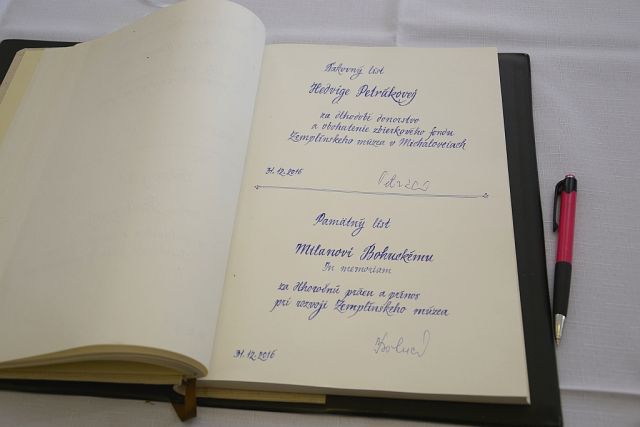 Ďakovný list
Hedvige Petrákovej
za dlhodobé donorstvo
a obohatenie zbierkového fondu
Zemplínskeho múzea v Michalovciach
31.12.2016
Pamätný list
Milanovi Bohuckému
In memoriam
za dlhoročnú prácu a prínos
pri rozvoji Zemplínskeho múzea
31.12.2016